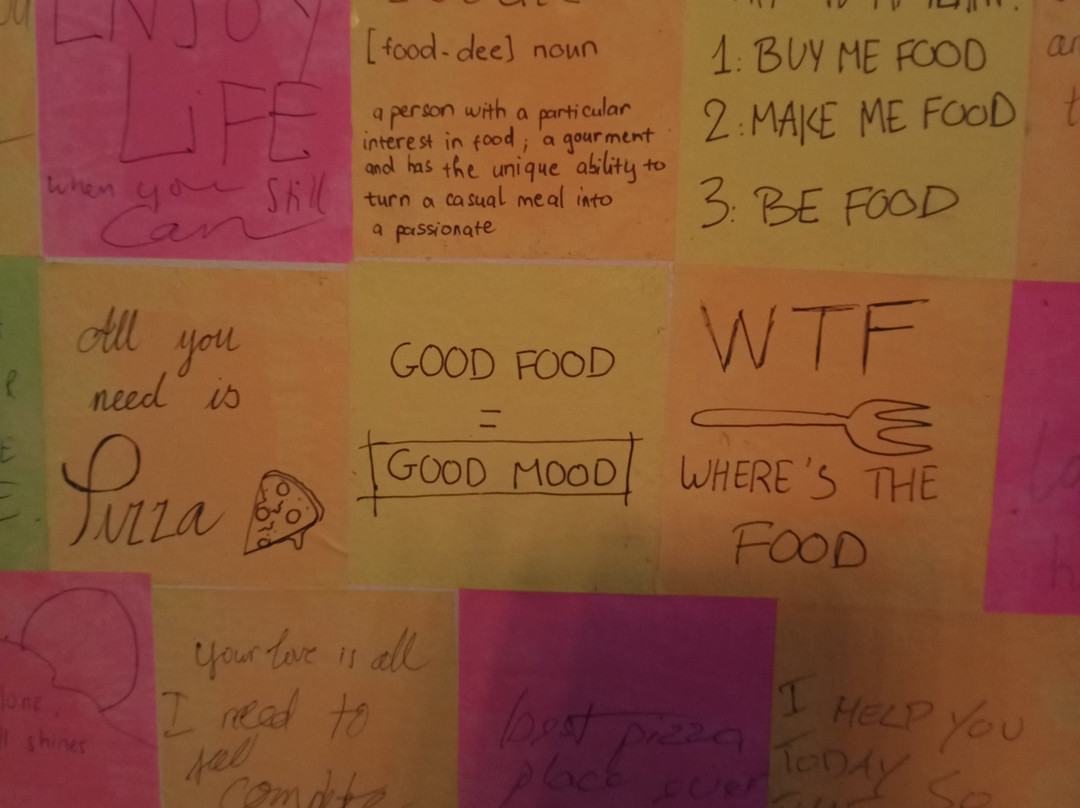 ENJOY
LiFE
when you still
Can
[food-dee] noun
a person with a particular
interest in food; a gourment
and has the unique ability to
turn a casual meal into
a passionate
1: BUY ME FOOD
2: MAKE ME FOOD
3: BE FOOD
All you
need is
Pizza
GOOD FOOD
=
GOOD MOOD
WTF
WHERE'S THE
FOOD
shines
your love is all
I need to
best pizza
place ever
I HELP YOU
TODAY